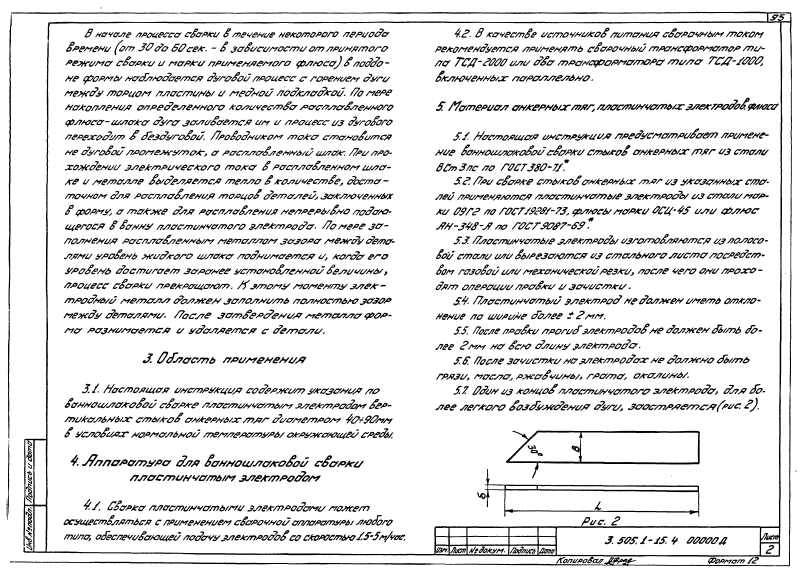 95
В начале процесса сварки в течение некоторого периода
времени (от 30 до 60 сек. - в зависимости от принятого
режима сварки и марки применяемого флюса) в поддо-
не формы наблюдается дуговой процесс с горением дуги
между торцом пластины и медной подкладкой. По мере
накопления определенного количества расплавленного
флюса-шлака дуга заливается им и процесс из дугового
переходит в бездуговой. Проводником тока становится
не дуговой промежуток, а расплавленный шлак. При про-
хождении электрического тока в расплавленном шла-
ке и металле выделяется тепло в количестве, доста-
точном для расплавления торцов деталей, заключенных
в форму, а также для расплавления непрерывно подаю-
щегося в ванну пластинчатого электрода. По мере за-
полнения расплавленным металлом зазора между дета-
лями уровень жидкого шлака поднимается и, когда его
уровень достигает заранее установленной величины,
процесс сварки прекращают. К этому моменту элек-
тродный металл должен заполнить полностью зазор
между деталями. После затвердения металла фор-
ма разнимается и удаляется с детали.
3. Область применения
3.1. Настоящая инструкция содержит указания по
ванношлаковой сварке пластинчатым электродом вер-
тикальных стыков анкерных тяг диаметром 40÷90мм
в условиях нормальной температуры окружающей среды.
4. Аппаратура для ванношлаковой сварки
пластинчатым электродом
4.1. Сварка пластинчатыми электродами может
осуществляться с применением сварочной аппаратуры любого
типа, обеспечивающей подачу электродов со скоростью 1.5-5 м/час.
4.2. В качестве источников питания сварочным током
рекомендуется применять сварочный трансформатор ти-
па ТСД-2000 или два трансформатора типа ТСД-1000,
включенных параллельно.
5. Материал анкерных тяг, пластинчатых электродов, флюса
5.1. Настоящая инструкция предусматривает примене-
ние ванношлаковой сварки стыков анкерных тяг из стали
ВСт 3пс по ГОСТ 380-71*.
5.2. При сварке стыков анкерных тяг из указанных ста-
лей применяются пластинчатые электроды из стали мар-
ки 09Г2 по ГОСТ 19281-73, флюсы марки ОСЦ-45 или флюс
АН-348-А по ГОСТ 9087-69*.
5.3. Пластинчатые электроды изготовляются из полосо-
вой стали или вырезаются из стального листа посредст-
вом газовой или механической резки, после чего они прохо-
дят операции правки и зачистки.
5.4. Пластинчатый электрод не должен иметь откло-
нение по ширине более ± 2 мм.
5.5. После правки прогиб электродов не должен быть бо-
лее 2 мм на всю длину электрода.
5.6. После зачистки на электродах не должно быть
грязи, масла, ржавчины, грата, окалины.
5.7. Один из концов пластинчатого электрода, для бо-
лее легкого возбуждения дуги, заостряется (рис. 2).
30°
В
Б
L
Рис. 2
Изм Лист № докум. Подпись Дата
3.505.1-15.4 00000Д
Лист
2
Копировал
Формат 12
Инв.№ подл. Подпись и дата